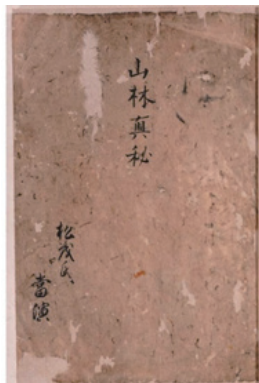 山林真秘
松茂氏
當演